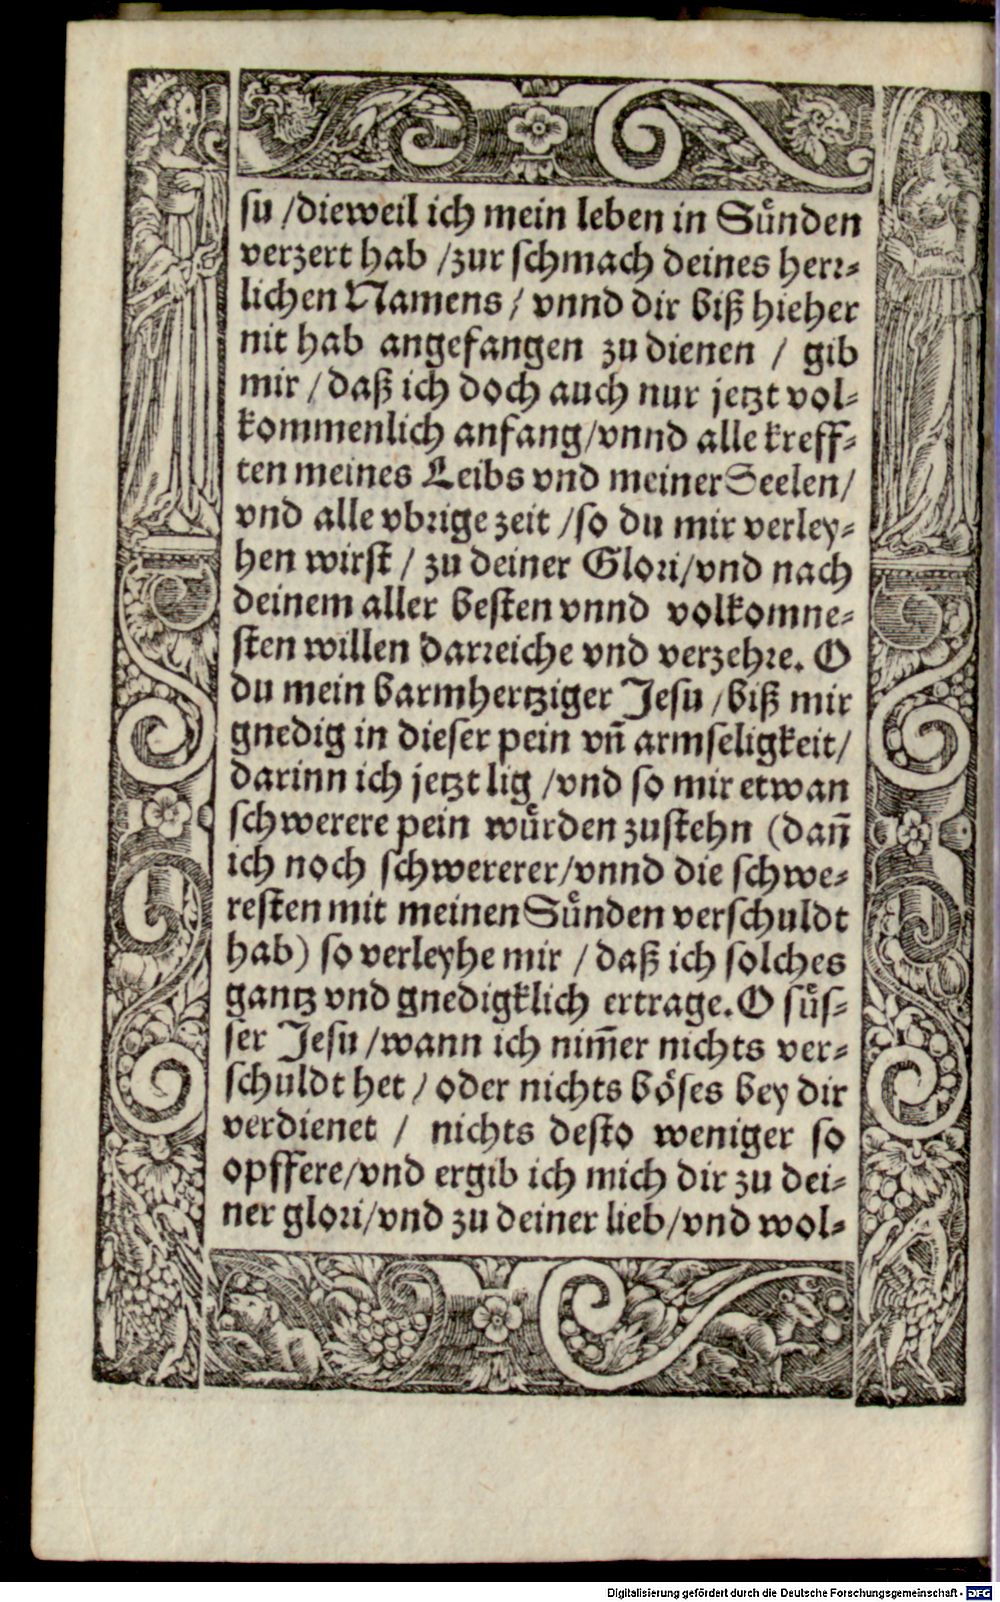 su /dieweil ich mein leben in Sünden
verzert hab /zur schmach deines herr-
lichen Namens / vnnd dir biß hieher
nit hab angefangen zu dienen / gib
mir / daß ich doch auch nur jetzt vol-
kommenlich anfang/vnnd alle kreff-
ten meines Leibs vnd meiner Seelen/
vnd alle vbrige zeit /so du mir verley-
hen wirst / zu deiner Glori/vnd nach
deinem aller besten vnnd volkomne-
sten willen darreiche vnd verzehre. O
du mein barmhertziger Jesu /biß mir
gnedig in dieser pein vn̄ armseligkeit/
darinn ich jetzt lig /vnd so mir etwan
schwerere pein würden zustehn (dan̄
ich noch schwererer/vnnd die schwe-
resten mit meinen Sünden verschuldt
hab) so verleyhe mir / daß ich solches
gantz vnd gnedigklich ertrage. O süs-
ser Jesu /wann ich nim̄er nichts ver-
schuldt het / oder nichts böses bey dir
verdienet / nichts desto weniger so
opffere/vnd ergib ich mich dir zu dei-
ner glori/vnd zu deiner lieb/vnd wol-
Digitalisierung gefördert durch die Deutsche Forschungsgemeinschaft - DFG